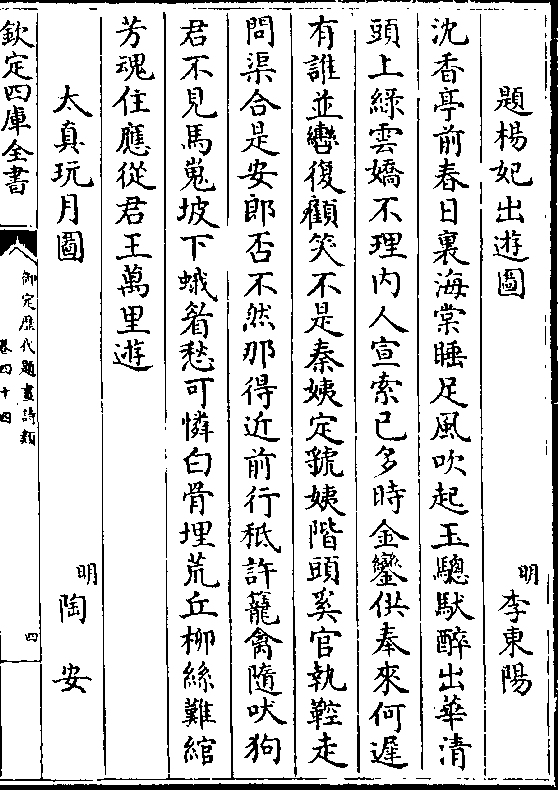 題楊妃出遊圖
明李東陽
沈香亭前春日裏海棠睡足風吹起玉驄馱醉出華清
頭上綠雲嬌不理内人宣索已多時金鑾供奉來何遲
有誰並轡復顧笑不是秦姨定虢姨階頭奚官執鞚走
問渠合是安郎否不然那得近前行秖許籠禽隨吠狗
君不見馬嵬坡下蛾眉愁可憐白骨埋荒丘柳絲難綰
芳魂住應從君王萬里遊
太真玩月圖
明陶安
欽定四庫全書
御定歷代題畫詩類
卷四十四
四